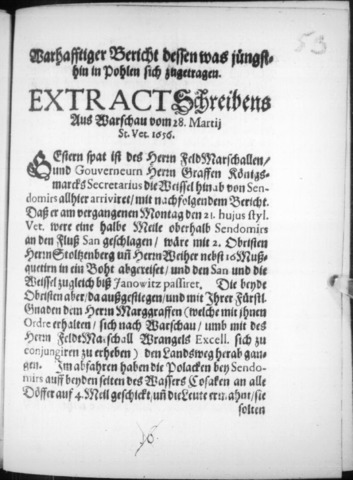 53
Warhafftiger Bericht dessen was jüngst-
hin in Pohlen sich zugetragen.
EXTRACT Schreibens
Aus Warschau vom 28. Martij
St. Vet. 1656.
GEstern spat ist des Herrn FeldMarschallen/
und Gouveneurn Herrn Graffen Königs-
marcks Secretarius die Weissel hinab von Sen-
domirs allhier arriviret/ mit nachfolgendem Bericht.
Daß er am vergangenen Montag den 21. hujus styl.
Vet. were eine halbe Meile oberhalb Sendomirs
an den Fluß San geschlagen/ wäre mit 2. Obristen
Herrn Stoltzenberg uñ Herrn Weiher nebst 16 Muß-
quetirn in ein Boht abgereiset/ und den San und die
Weissel zugleich biß Janowitz passiret. Die beyde
Obristen aber/ da außgestiegen/ und mit Ihrer Fürstl.
Gnaden dem Herrn Marggraffen (welche mit ihnen
Ordre erhalten/ sich nach Warschau/ umb mit des
Herrn FeldtMarschall Wrangels Excell. sich zu
conjungiren zu erheben) den Landsweg herab gan-
gen. Im abfahren haben die Polacken bey Sendo-
mirs auff beyden seiten des Wassers Cosaken an alle
Döffer auf 4. Meil geschickt/ uñ die Leute erm̃ahnt/ sie
solten